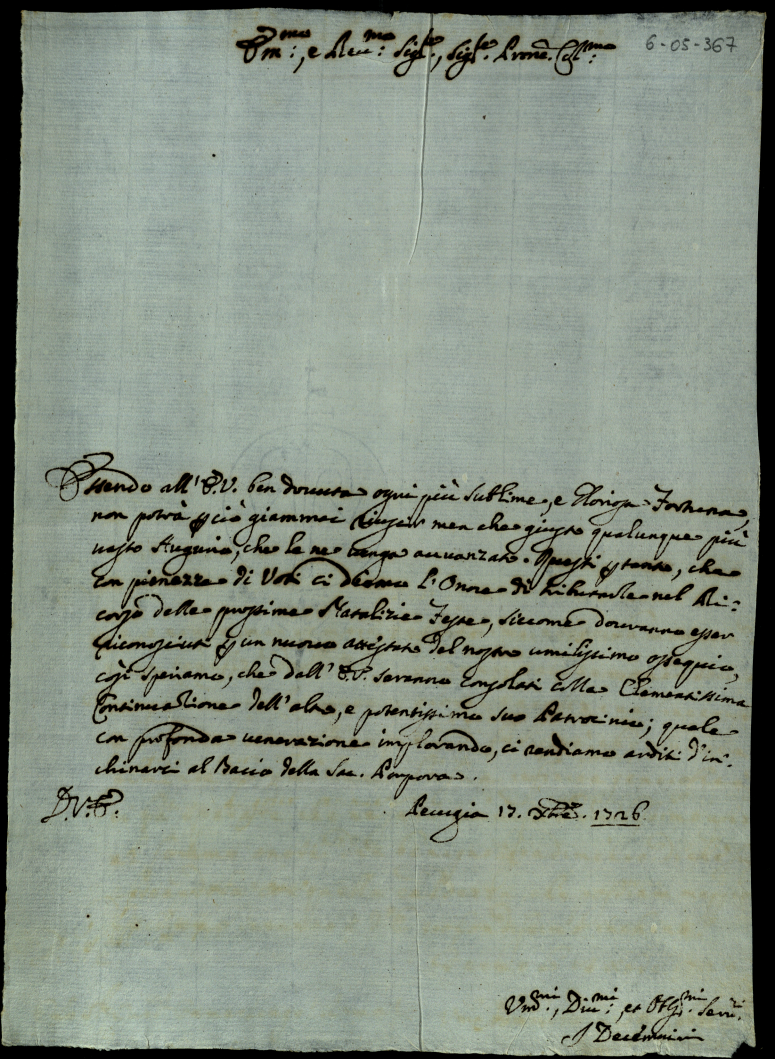 6-05-367
Em:mo, e Reu:mo Sig:re, Sig:re Prone Col:mo
Essendo all' E.V. ben douuta ogni più sublime, e Gloriosa Fortuna,
non potrà p ciò giammai riuscir men che giusto qualunque più
uasto Augurio, che le ne venga auuanzato. Questi p tanto, che
con pienezza di Voti ci diamo l' Onore di tributarle nel Ri:
corso delle prossime Natalizie Feste, siccome douranno esser
riconosciuti p un nuouo attestato del nostro umilissimo ossequio,
così speriamo, che dall' E.V. saranno consolati colla Clementissima
Continuazione dell' alto, e potentissimo suo Patrocinio; quale
con profonda uenerazione implorando, ci rendiamo arditi d' in:
chinarci al Bacio della Sac. Porpora.
D.V.E.
Perugia 17. Xbre. 1726
Um:mi, Diu:mi, et Obl:mi Seru:ri
I Decemuiri